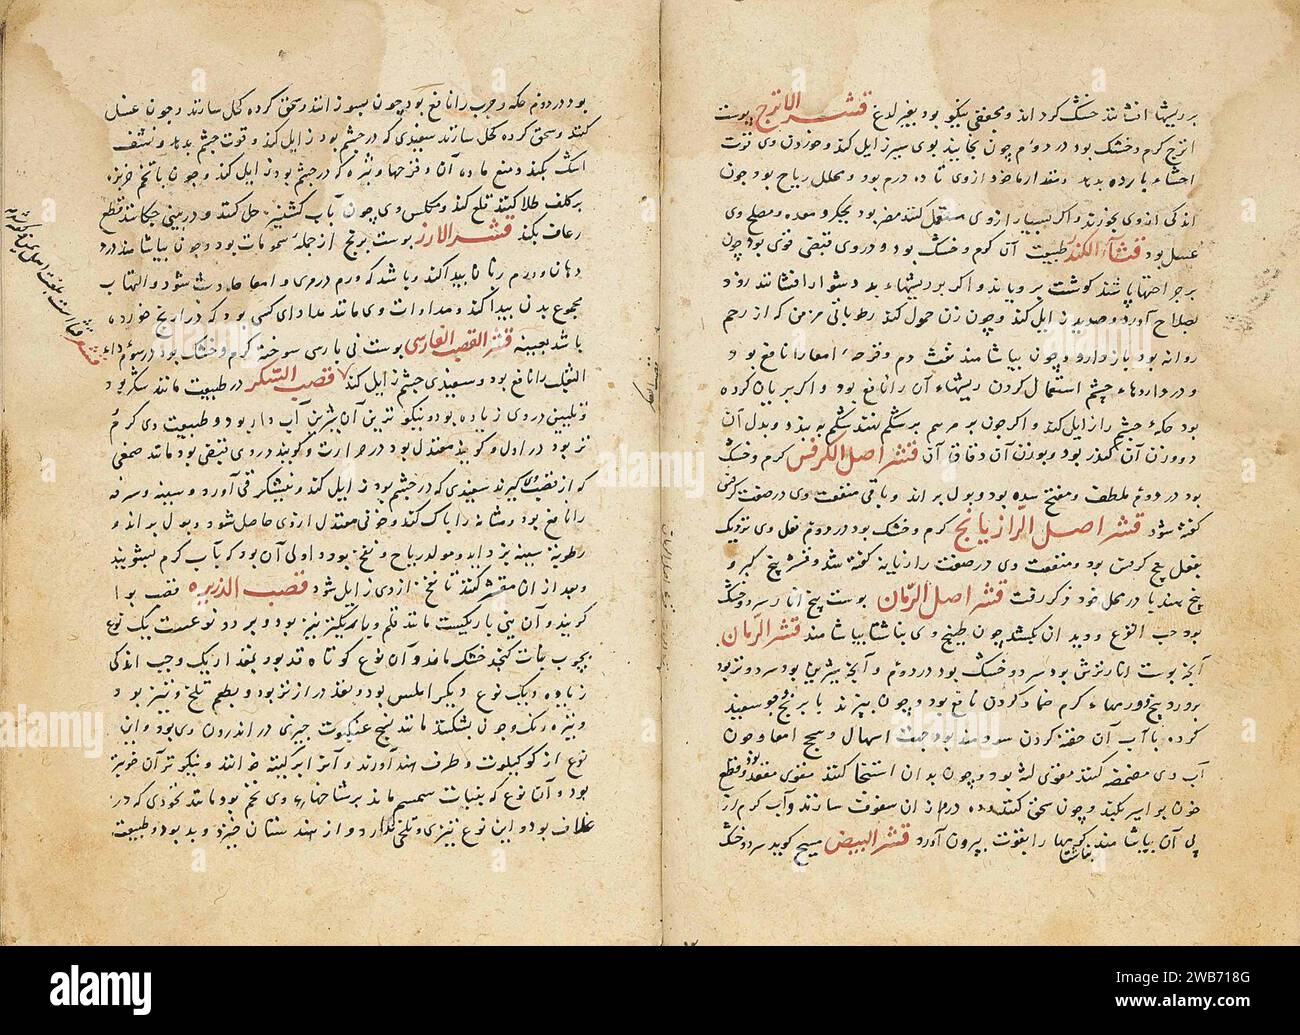 بر ریشها افشانند خشک کرداند و مجففی نیکو بود بغیر لدغ قشر الاترج پوست
اترج کرم و خشک بود در دوم چون بخایند بوی سیر زایل کند و خوردن وی قوت
احشاء بارده بدهد و مقدار ماخوذ از وی تا ده درم بود و محلل ریاح بود چون
اندکی از وی بخورند و اکر بسیار از وی مستعمل کنند مضر بود بجکر و معده و مصلح وی
عسل بود قشاء الکندر طبیعت آن کرم و خشک بود و در وی قبضی قوی بود چون
بر جراحتها پاشند کوشت برویاند و اکر بر ریشهاء بد دشوار افشانند زود
بصلاح آورد و صدید زایل کند و چون زن حمول کند رطوباتی مزمن که از رحم
روانه بود باز دارد و چون بیاشامند نفث دم و قرحهٔ امعا را نافع بود و
و در داروهاء چشم استعمال کردن ریشهاء آن را نافع بود و اکر بریان کرده
بود حکهٔ چشم را زایل کند و اکر چون مرهم بر شکم نهند شکم ببندد و بدل آن
دو وزن آن کندر بود و بوزن آن دقاق آن قشر اصل الکرفس کرم و خشک
بود در دوم ملطف و مفتح سده بود و بول براند و باقی منفعت وی در صفت کرفس
کفته شود قشر اصل الرازیانج کرم و خشک بود در دوم فعل وی نزدیک
بفعل بیخ کرفس بود و منفعت وی در صفت رازیانه کفته شد و قشر بیخ کبر و
بیخ هندبا در محل خود ذکر رفت قشر اصل الرمان پوست بیخ انار سرد و خشک
بود حب القرع و دیدان بکشد چون طبیخ وی بناشتا بیاشامند قشر الرمان
آنچه پوست انار ترش بود سرد و خشک بود در دوم و آنچه شیرین بود سرد و تر بود
کرده با آب آن حقنه کردن سودمند بود جهت اسهال و سحج امعا و چون
آب وی مضمضه کنند مقوی لثه بود و چون بدان استنجا کنند مقوی مقعد بود و قطع
خون بواسیر بکند و چون سحق کنند ده درم از آن سفوف سازند و آب کرم از
پی آن بیاشامند کرمها را بقوت بیرون آورد قشر البیض مسیح کوید سرد و خشک
بناشتا
بود در دوم حکه و جرب را نافع بود چون بسوزانند و سحق کرده کحل سازند و چون عسل
کنند و سحق کرده کحل سازند سفیدی که در چشم بود زایل کند و قوت چشم بدهد و نشف
اشک بکند و منع ماده آن و قرحها و بثره که در چشم بود زایل کند و چون با تخم خربزه
بر کلف طلا کنند قلع کند و مکلس وی چون آب کشنیز حل کنند و در بینی چکانند قطع
رعاف بکند قشر الارز پوست برنج از جمله سمومات بود و چون بیاشامند درد
دهان و ورم زبان پیدا کند و باشد که ورم در مری و امعا حادث شود و التهاب
مجموع بدن پیدا کند و مداوات وی مانند مداوای کسی بود که ذراریح خورده
باشد بعینه قشر القصب الفارسی پوست نی پارسی سوخته کرم و خشک بود در سوم داء
الثعلب را نافع بود و سفیدی چشم زایل کند قصب السکر در طبیعت مانند شکر بود
و تلیین در وی زیاده بود و نیکوترین آن شیرین آب دار بود و طبیعت وی کرم
تر بود در اول و کویند معتدل بود در حرارت و کویند در وی قبضی بود مانند صمغی
که از قصب کیرند سفیدی که در چشم بود زایل کند و نیشکر قی آورد و سینه و سرفه
را نافع بود و مثانه را پاک کند و خونی معتدل از وی حاصل شود و بول براند و
رطوبة سینه بزداید و مولد ریاح و نفخ بود و اولی آن بود که بآب کرم بشویند
و بعد از آن مقشر کنند تا نفخ از وی زایل شود قصب الذریره قصب بوا
کویند و آن نیی باریکست مانند قلم و بابرنکتر نیز بود و بر دو نوعست یک نوع
بچوب نبات کنجد خشک ماند و آن نوع کوتاه قد بود بمقدار یک وجب اندکی
زیاده و یک نوع دیکر املس بود و بقد دراز تر بود و بطعم تلخ و تیز بود و
و تیره رنک و چون بشکنند مانند نسج عنکبوت چیزی در اندرون وی بود و این
بود و آن نوع که بنبات سمسم ماند بر شاخهاء وی تخم بود مانند نخودی که در
غلاف بود و این نوع تیزی و تلخی ندارد و از هندستان خیزد و بد بود و طبیعت
alamy
Image ID: 2WB718G
www.alamy.com